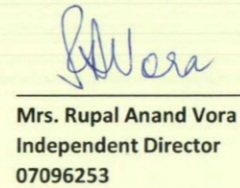 Mrs. Rupal Anand Vora
Independent Director
07096253